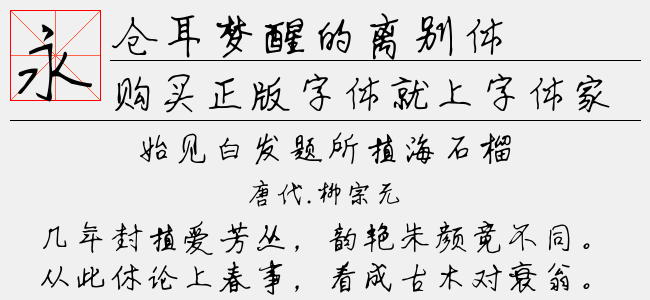 永
仓耳梦醒的离别体
购买正版字体就上字体家
始见白发题所植海石榴
唐代.柳宗元
几年封植爱芳丛，韵艳朱颜竟不同。
从此休论上春事，看成古木对衰翁。